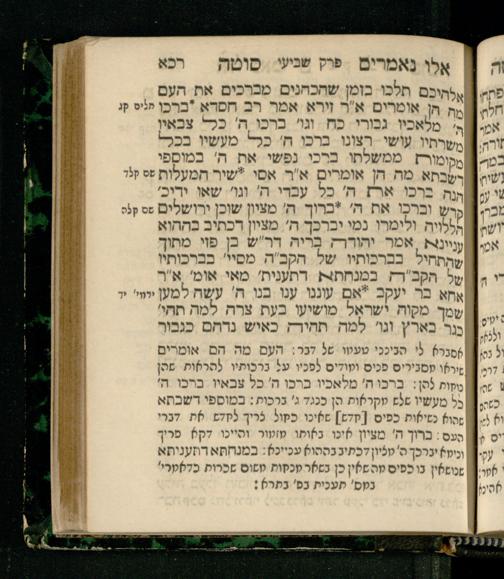 אלו נאמרים פרק שביעי סוטה רכא
אלהיכם תלכו בזמן שהכהנים מברכים את העם
מה הן אומרים א״ר זירא אמר רב חסדא *ברכו תלים קג
ה׳ מלאכיו גבורי כח וגו׳ ברכו ה׳ כל צבאיו
משרתיו עושי רצונו ברכו ה׳ כל מעשיו בכל
מקומות ממשלתו ברכי נפשי את ה׳ במוספי
דשבתא מה הן אומרים א״ר אסי *שיר המעלות שם קלד
הנה ברכו את ה׳ כל עבדי ה׳ וגו׳ שאו ידיכ׳
קדש וברכו את ה׳ *ברוך ה׳ מציון שוכן ירושלים שם קלה
הללויה ולימרו נמי יברכך ה׳ מציון דכתיב בההוא
עניינא אמר יהודה בריה דר״ש בן פזי מתוך
שהתחיל בברכותיו של הקב״ה מסיי׳ בברכותיו
של הקב״ה במנחתא דתענית׳ מאי אומ׳ א״ר
אחא בר יעקב *אם עוננו ענו בנו ה׳ עשה למען ירמי׳ יד
שמך מקוה ישראל מושיעו בעת צרה למה תהי׳
כגר בארץ וגו׳ למה תהיה כאיש נדהם כגבור
אסברא לי הבינני טעמו של דבר: העם מה הם אומרים
שיראו מסבירים פנים ומודים לפניו על ברכותיו להראות שהן
נוחות להן: ברכו ה׳ מלאכיו ברכו ה׳ כל צבאיו ברכו ה׳
כל מעשיו שלש מקראות הן כנגד ג׳ ברכות: במוספי דשבתא
שהוא נשיאות כפים [קדש] שאינו כחול צריך לקדש את דברי
העם: ברוך ה׳ מציון אינו באותו מזמור והיינו דקא פריך
ונימא יברכך ה׳ מציון דכתיב בההוא עניינא: במנחתא דתעניתא
שנושאין בו כפים מה שאין כן בשאר מנחות משום שכרות כדאמרי׳
במס׳ תענית בס׳ בתרא: